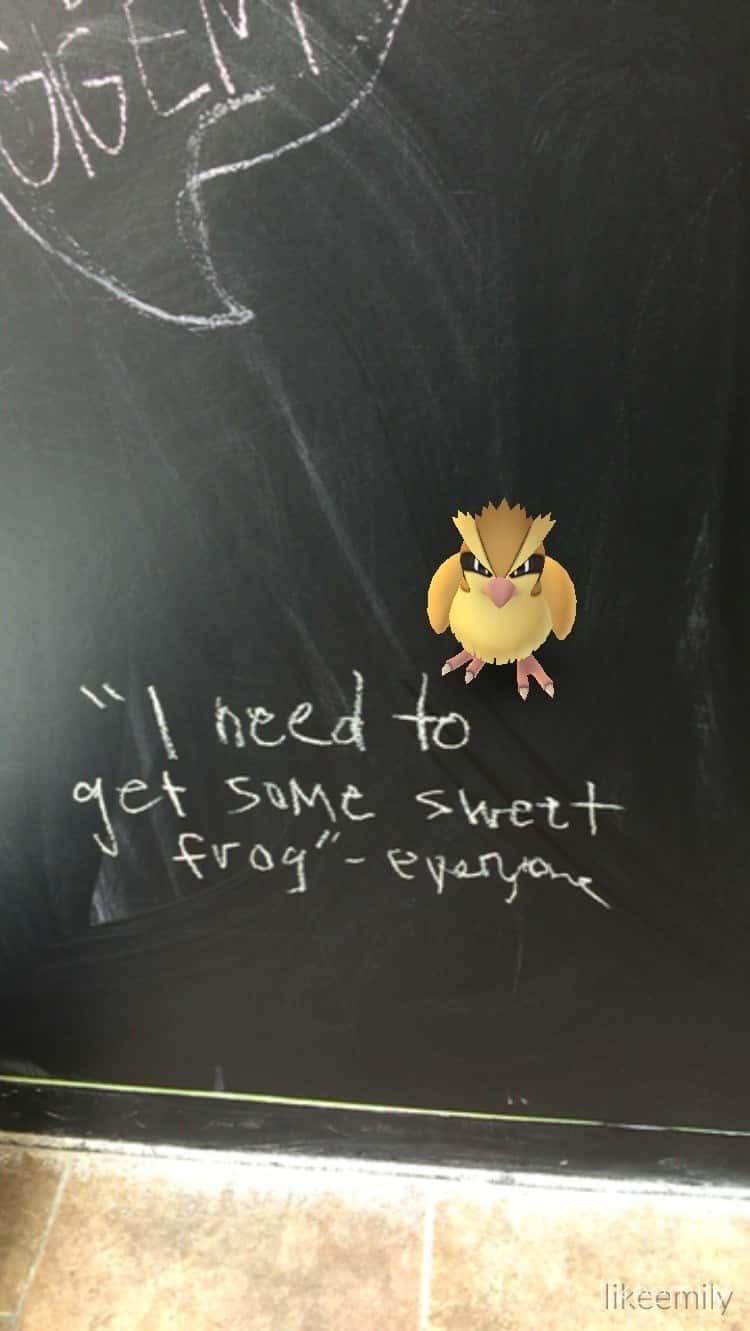 "I need to
get some sweet
frog" - everyone
likeemily